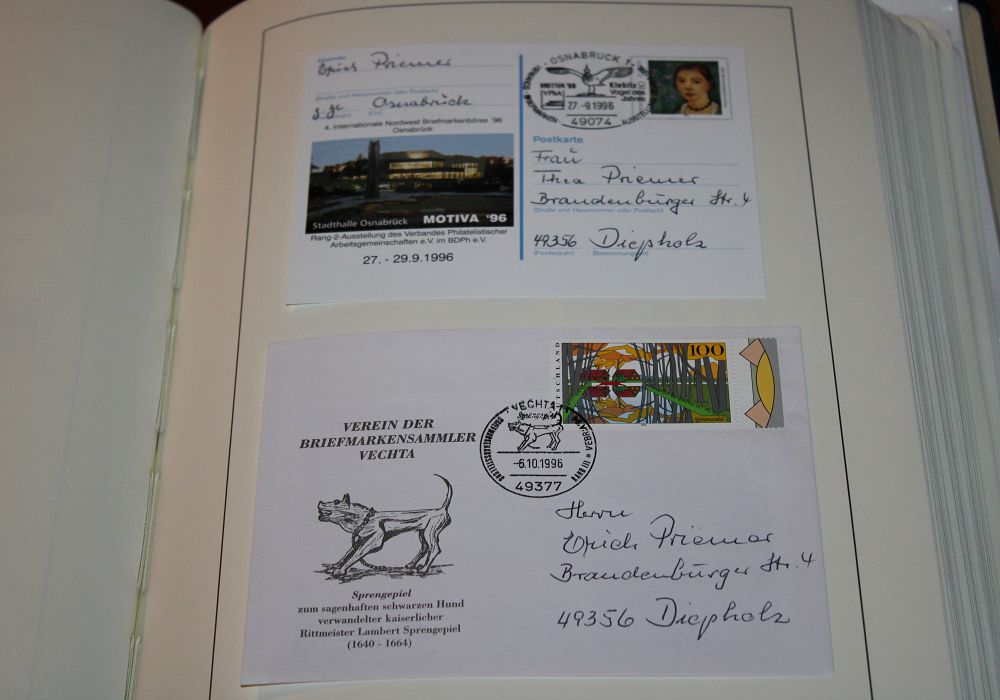 Erich Priemer
(Straße und Hausnummer oder Postfach)
z. Zt. Osnabrück
4. Internationale Nordwest Briefmarkenbörse '96
Osnabrück
Stadthalle Osnabrück MOTIVA '96
Rang-2-Ausstellung des Verbandes Philatelistischer
Arbeitsgemeinschaften e.V. im BDPh e.V.
27. - 29.9.1996
OSNABRÜCK 1
MOTIVA '96
[VPhA]
Kiebitz
Vogel des
Jahres
27.-9.1996
49074
Postkarte
Frau
Thea Priemer
Brandenburger Str. 4
(Straße und Hausnummer oder Postfach)
49356 Diepholz
(Postleitzahl) (Bestimmungsort)
DEUTSCHLAND
100
Spreewald
VEREIN DER
BRIEFMARKENSAMMLER
VECHTA
VECHTA 1
Sprengepiel
-6.10.1996
49377
Herrn
Erich Priemer
Brandenburger Str. 4
49356 Diepholz
Sprengepiel
zum sagenhaften schwarzen Hund
verwandelter kaiserlicher
Rittmeister Lambert Sprengepiel
(1640 - 1664)